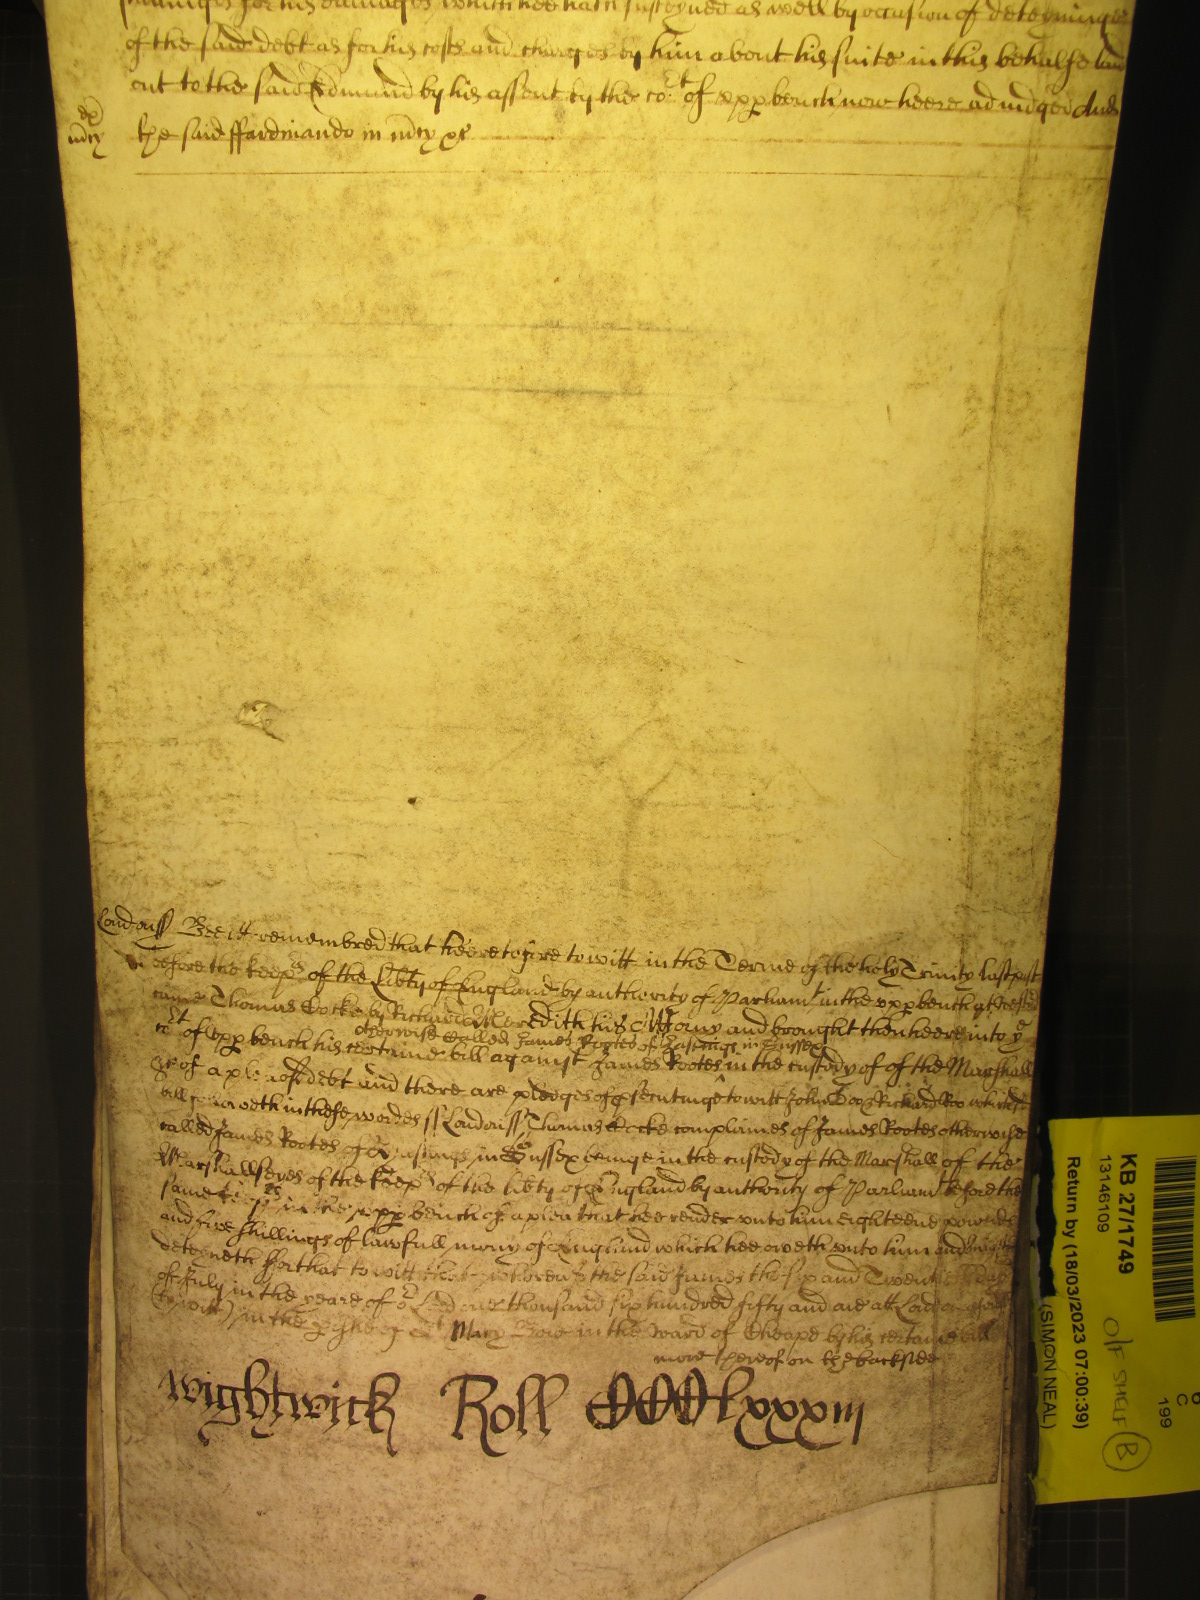 for his damages which hee hath susteyned as well by occasion of deteyninge
of the said debt as for his costs and charges by him about his suite in this behalfe laid
out to the said Edmund by his assent by the cort of vpp bench now heere adiudged And
the said ffardinando in mcy &c
mcy
London ss Bee itt remembred that heeretofore to witt in the Terme of the holy Trinity last past
before the keeprs of the libty of England by authority of Parliamt in the vpp bench at Westmr
came Thomas Cocke by Richard Meredith his Attorny and brought then heere into ye
otherwise called James Rootes of Hastings in Sussex
cort of vpp bench his certaine bill against James Rootes in the custody of of the Marshall
&c of a plea of debt and there are pledges of psecutinge to witt John Doo & Richard Roo which
bill followeth in these wordes ss London ss Thomas Cocke complaines of James Rootes otherwise
called James Rootes of Hastings in Sussex beinge in the custody of the Marshall of the
Marshallseyes of the keeprs of the libty of England by authority of Parliamt before the
same keeprs in the vpp bench of a plea that hee render vnto him eighteene pownds
and five shillings of lawfull mony of England which hee oweth vnto him and
deteyneth ffor that to witt that whereas the said James the six and Twentieth day
of July in the yeare of or Lord one thousand six hundred fifty and one att London
(to witt) in the pishe of St Mary Bow in the ward of Cheape by his certaine bill
more thereof on the backside
Wightwick Roll CCCClxxxiii
KB 27/1749
13146109
Return by (18/03/2023 07:00:39)
(SIMON NEAL)
O/F SHELF B
C
199